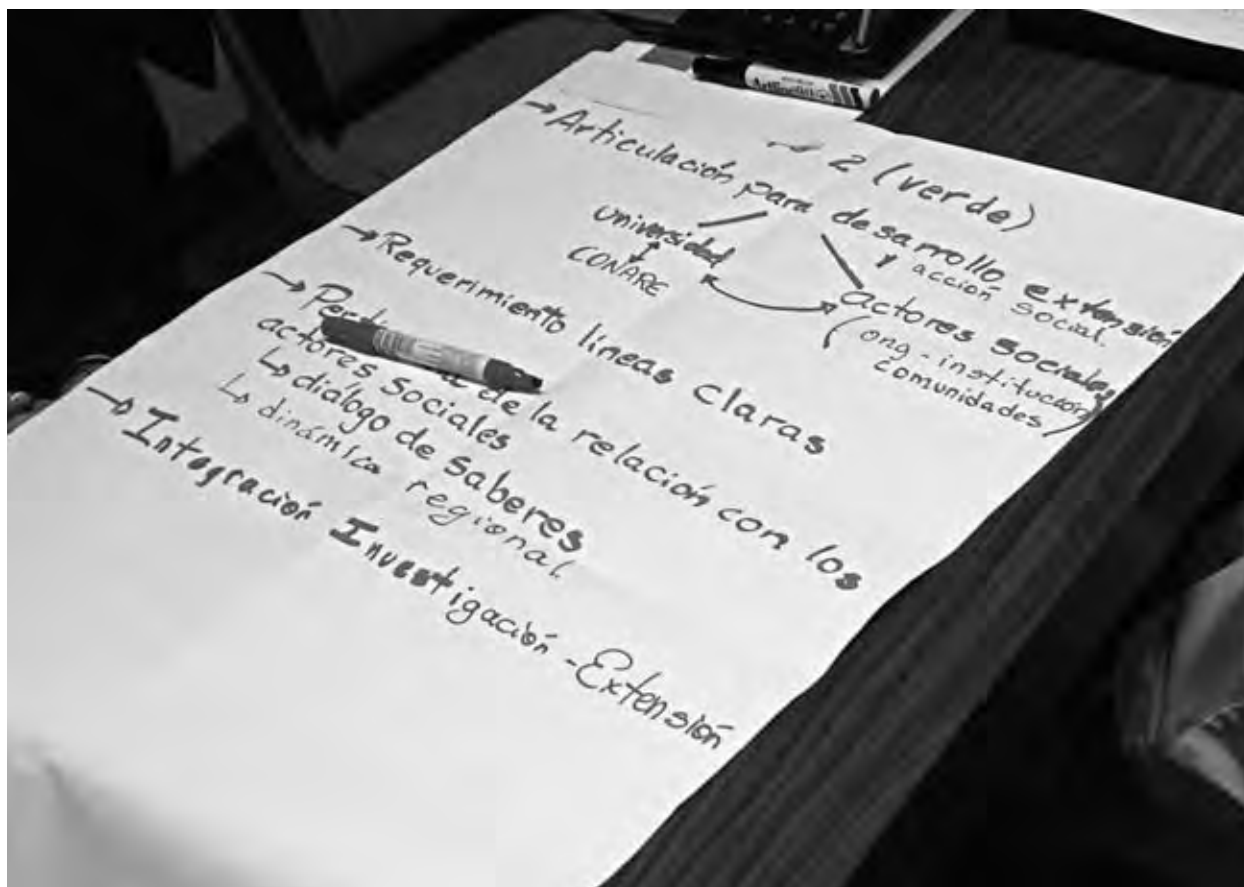 2 (verde)
→ Articulación para desarrollo extensión
y acción social
universidad
CONARE
actores sociales
(ong - institución
comunidades)
→ Requerimiento líneas claras
→ de la relación con los
actores sociales
↳ diálogo de saberes
↳ dinámica regional
→ Integración Investigación - Extensión